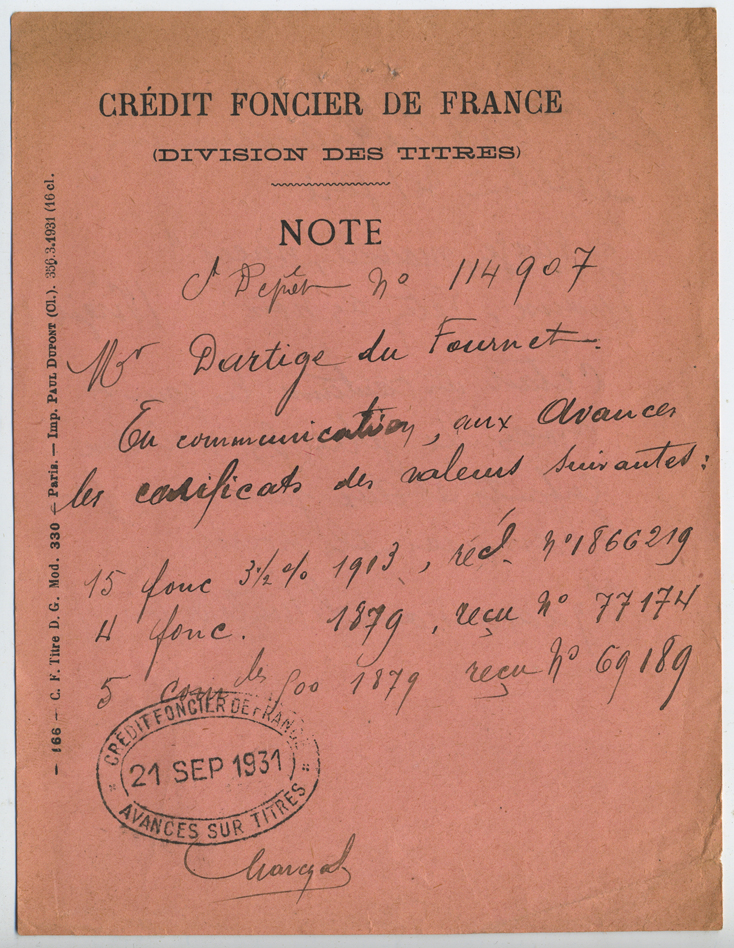 CRÉDIT FONCIER DE FRANCE
(DIVISION DES TITRES)
NOTE
Dépôt N° 114907
Mr Dartige du Fournet
En communication, aux Avances
les certificats des valeurs suivantes :
15 fonc 3 1/2 % 1913, réc. N° 1866219
4 fonc. 1879, reçu N° 77174
5 comles 500 1879 reçu N° 69189
CRÉDIT FONCIER DE FRANCE
21 SEP 1931
AVANCES SUR TITRES
— 166 — C. F. Titre D. G. Mod. 330 — Paris. — Imp. PAUL DUPONT (Cl.). 356.3.1931 (16 cl.